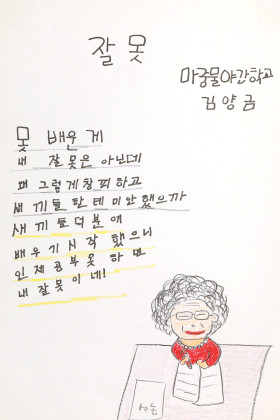 잘 못
마중물야간학교
김양금
못 배운 게
내 잘못은 아닌데
왜 그렇게창피하고
새끼들한테미안했으까
새끼들덕분에
배우기시작했으니
인제공부못하면
내잘못이네!